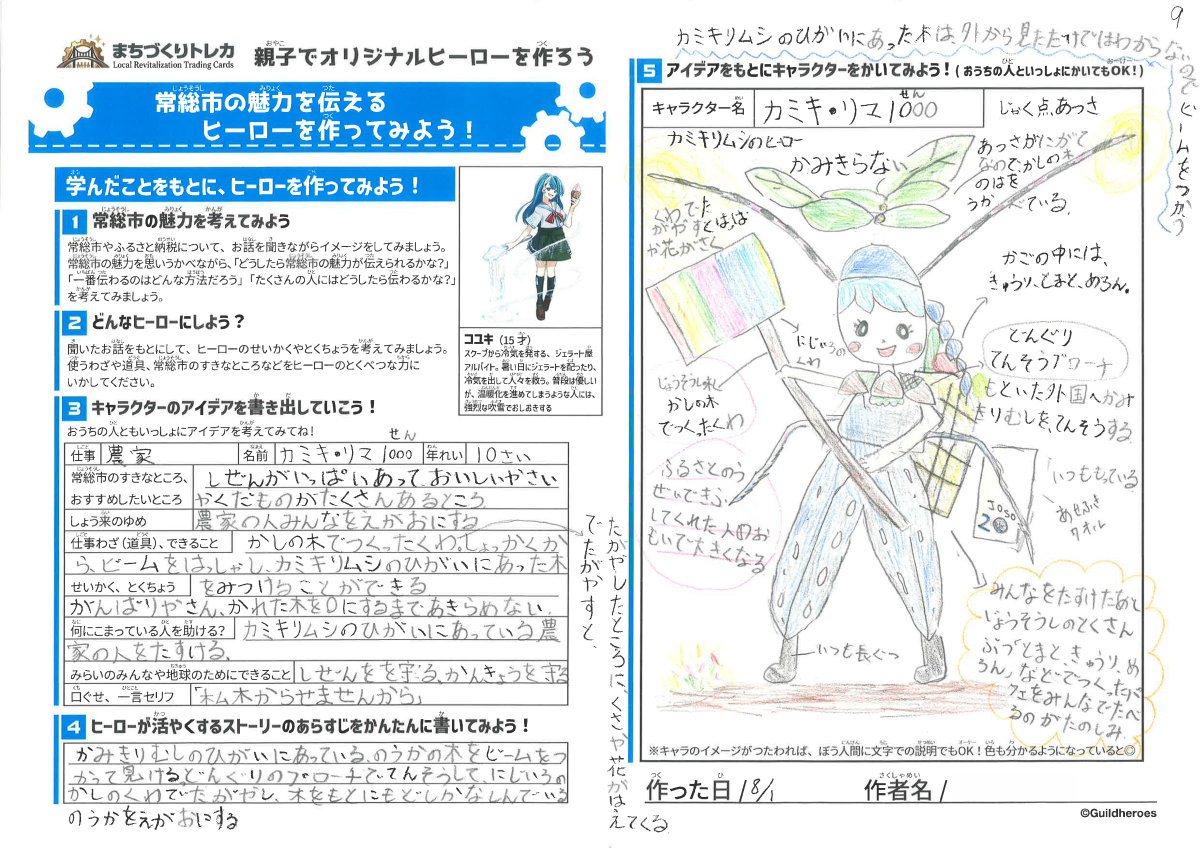 まちづくりトレカ
Local Revitalization Trading Cards
親子でオリジナルヒーローを作ろう
常総市の魅力を伝える
ヒーローを作ってみよう！
学んだことをもとに、ヒーローを作ってみよう！
1 常総市の魅力を考えてみよう
常総市やふるさと納税について、お話を聞きながらイメージをしてみましょう。
常総市の魅力を思いうかべながら、「どうしたら常総市の魅力が伝えられるかな？」
「一番伝わるのはどんな方法だろう」「たくさんの人にはどうしたら伝わるかな？」
を考えてみましょう。
2 どんなヒーローにしよう？
聞いたお話をもとにして、ヒーローのせいかくやとくちょうを考えてみましょう。
使うわざや道具、常総市のすきなところなどをヒーローのとくべつな力に
いかしてください。
ココキ（15才）
スクープから冷気を発する、ジェラート屋
アルバイト。暑い日にジェラートを配ったり、
冷気を出して人々を救う。普段は優しい
が、温暖化を進めてしまうような人には、
強烈な吹雪でおしおきする
3 キャラクターのアイデアを書き出していこう！
おうちの人ともいっしょにアイデアを考えてみてね！
仕事 農家 名前 カミキ・リマ1000 せん 年れい 10さい
常総市のすきなところ、おすすめしたいところ
しぜんがいっぱいあっておいしいやさい
やくだものがたくさんあるところ
しょう来のゆめ 農家の人みんなをえがおにする
仕事わざ（道具）、できること かしの木でつくったくわ。しょっかくか
ら、ビームをはっしゃし、カミキリムシのひがいにあった木
せいかく、とくちょう をみつけることができる
がんばりやさん、かれた木を0にするまであきらめない。
何にこまっている人を助ける？ カミキリムシのひがいにあっている農
家の人をたすける、
みらいのみんなや地球のためにできること しぜんをを守る、かんきょうを守る
口ぐせ、一言セリフ 「木ム木からせませんから」
4 ヒーローが活やくするストーリーのあらすじをかんたんに書いてみよう！
かみきりむしのひがいにあっている、のうかの木をビームをつ
かって見けるどんぐりのブローチでてんそうして、にじいろの
かしのくわでたがやし、木をもとにもどしかなしんでいる
のうかをえがおにする
たがやしたところに、くさや花がはえてくる
でたがやすと、
9
カミキリムシのひがいにあった木は外から見ただけではわからないのでビームをつかう
5 アイデアをもとにキャラクターをかいてみよう！（おうちの人といっしょにかいてもOK！）
キャラクター名 カミキ・リマ1000 せん
じゃく点、あっさ
カミキリムシのヒーロー
かみきらない
あっさがにがて
なので、かしの木
のはを
うかべている。
くわでた
がやすくは、は
か花がさく
にじいろの
くわ
かごの中には、
きゅうり、とまと、めろん。
どんぐり
てんそうブローチ
もといた外国へかみ
きりむしを、てんそうする
じょうそうし水し
かしの木
でつくったくわ
ふるさとのう
ぜいできふ
してくれた人のお
もいで大きくなる
いつももっている
あせふき
タオル
JOSO
2
いつも長ぐつ
みんなをたすけたあと
じょうそうしのとくさん
ぶつとまと、きゅうり、め
ろん」などでつくったパ
フェをみんなでたべ
るのがたのしみ。
※キャラのイメージがつたわれば、ぼう人間に文字での説明でもOK！色も分かるようになっていると◎
作った日 18/1
作者名
©Guildheroes